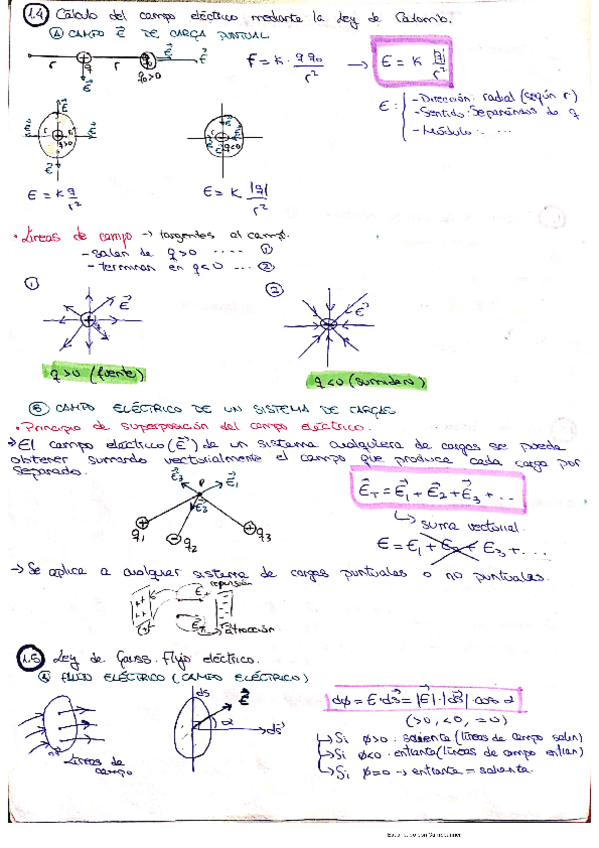 1.4 Cálculo del campo eléctrico mediante la Ley de Coulomb.
A CAMPO E⃗ DE CARGA PUNTUAL
r q r q₀>0 E⃗
E⃗
F = K · q q₀ / r² → E = K |q| / r²
E: - Dirección: radial (según r)
- Sentido: separándose de q
- Módulo: ...
E⃗ E⃗ r q>0 E⃗ E⃗
E⃗ r E⃗ E⃗ q<0 E⃗
E = K q / r²
E = K |q| / r²
• Líneas de campo → tangentes al campo.
- salen de q>0 .... ①
- terminan en q<0 ... ②
① E⃗
② E⃗
q>0 (fuente)
q<0 (sumidero)
B CAMPO ELÉCTRICO DE UN SISTEMA DE CARGAS
• Principio de superposición del campo eléctrico.
→ El campo eléctrico (E⃗) de un sistema cualquiera de cargas se puede
obtener sumando vectorialmente el campo que produce cada carga por
separado.
E⃗₃ P E⃗₁
E⃗₂
q₁ q₂ q₃
E⃗T = E⃗₁ + E⃗₂ + E⃗₃ + ...
↳ suma vectorial
E = E₁ + E₂ + E₃ + ...
→ Se aplica a cualquier sistema de cargas puntuales o no puntuales.
repulsión
atracción
1.5 Ley de Gauss. Flujo eléctrico.
A FLUJO ELÉCTRICO (CAMPO ELÉCTRICO)
Líneas de
campo
ds E⃗
α
ds⃗
dφ = E · ds⃗ = |E⃗| · |ds⃗| · cos α
(>0, <0, =0)
↳ Si φ>0: saliente (líneas de campo salen)
↳ Si φ<0: entrante (líneas de campo entran)
↳ Si φ=0 → entrante = saliente.